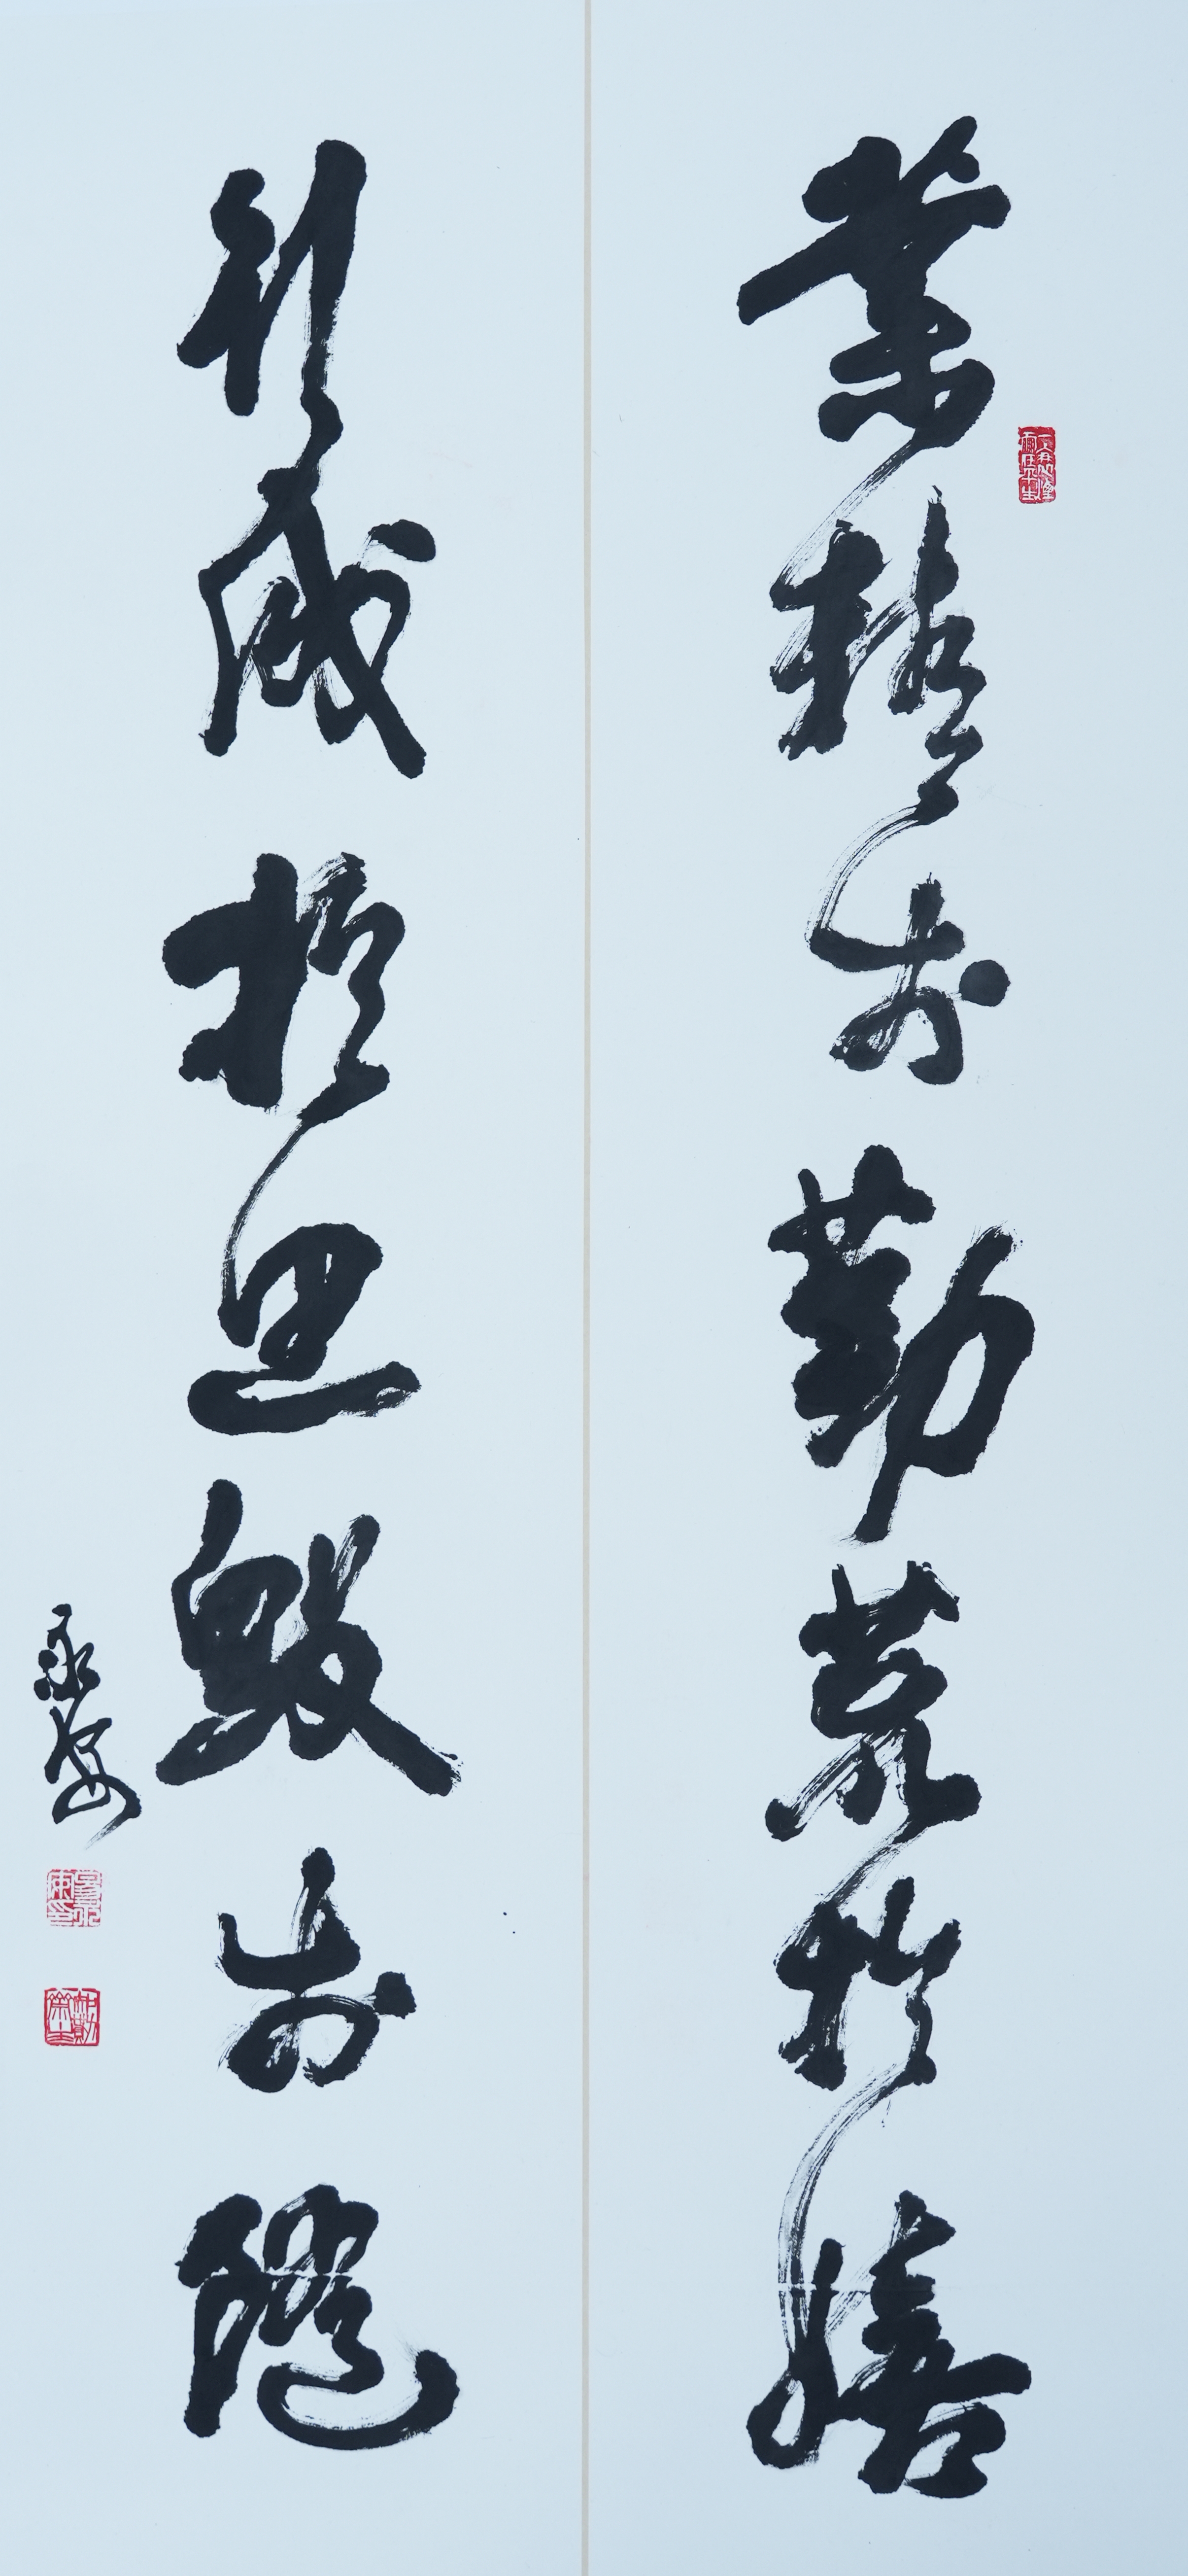 業精於勤荒於嬉
行成於思毀於隨
永安